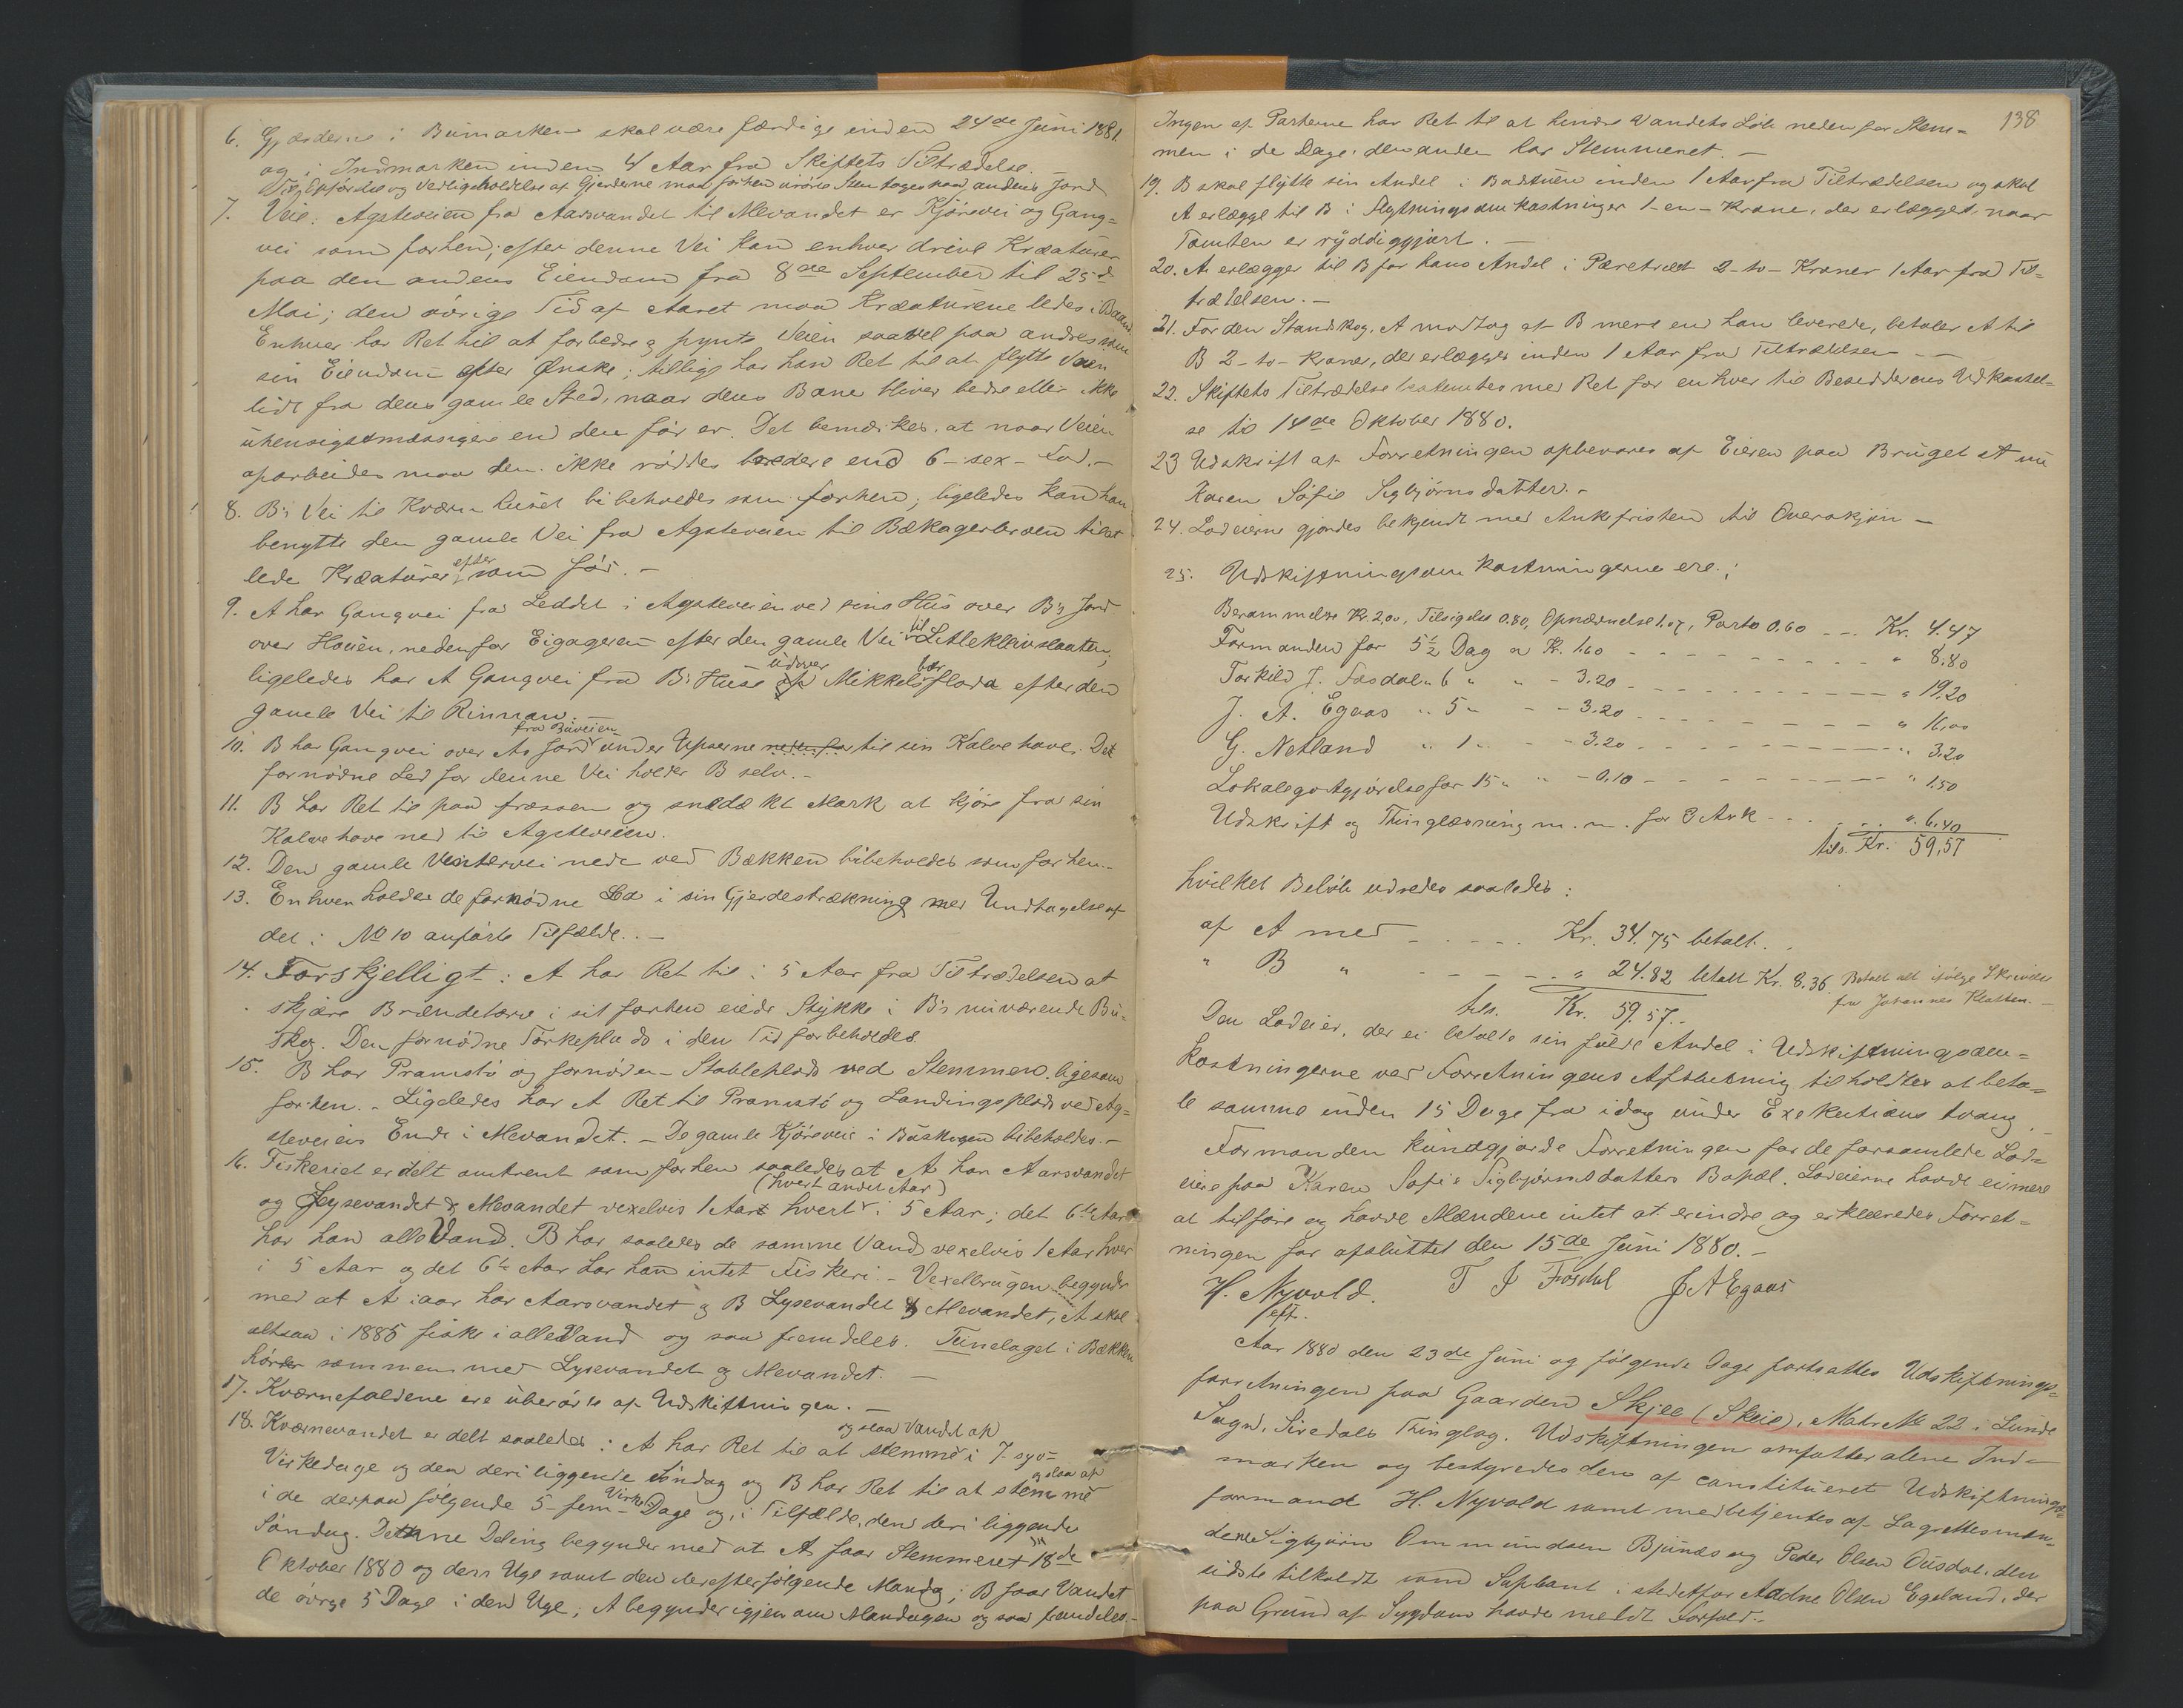 6. Gjerderne i Bumarken skal være færdige inden 24de Juni 1881.
og i Indmarken inden 4 Aar fra Skiftets Tiltrædelse.
Ved Opførelse og Vedligeholdelse af Gjerderne maa forhen urørte Sten tages paa andens Jord
7. Veie: Agsteveien fra Aarsvandet til Mevandet er Kjørevei og Gang=
vei som forhen; efter denne Vei kan enhver drive Kreaturer
paa den andens Eiendom fra 8de September til 25de
Mai; den øvrige Tid af Aaret maa Kreaturene ledes i Baand
Enhver har Ret til at forbedre og pynte Veien saavel paa andres som
sin Eiendom efter Ønske; tillige har han Ret til at flytte Veien
lidt fra dens gamle Sted, naar dens Bane bliver bedre eller ikke
uhensigtsmæssigere end den før er. Det bemærkes, at naar Veien
oparbeides maa den ikke røddes bredere end 6 - sex - Fod. -
8. B's Vei til Kværnhuset bibeholdes som forhen; ligeledes kan han
benytte den gamle Vei fra Agsteveien til Bækagerbroen til at
lede Kreaturer efter som før. -
9. A har Gangvei fra Leddet i Agsteveien ved sine Hus over B's Jord
over Houen, nedenfor Eigageren efter den gamle Vei til Litlekleivslaaten;
ligeledes har A Gangvei fra B's Huse udover Mikkelsbærflada efter den
gamle Vei til Rinnan. -
10. B har Gangvei over As Jord fra Buveien under Upserne nedenfor til sin Kalvehave. Det
fornødne Led for denne Vei holder B selv. -
11. B har Ret til paa frossen og snedækt Mark at kjøre fra sin
Kalvehave ned til Agsteveien.
12. Den gamle Vintervei nede ved Bækken bibeholdes som forhen. -
13. Enhver holder de fornødne Led i sin Gjerdestrækning med Undtagelse af
det i No 10 anførte Tilfælde. -
14. Forskjelligt: A har Ret til i 5 Aar fra Tiltrædelsen at
skjære Brændetørv i sit forhen eiede Stykke i B's nuværende Bu=
skog. Den fornødne Tørkeplads i den Tid forbeholdes.
15. B har Pramstø og fornøden Stableplads ved Stemmen ligesom
forhen. - Ligeledes har A Ret til Pramstø og Landingsplads ved Ag=
steveiens Ende i Mevandet. - De gamle Kjøreveie i Buskogen bibeholdes. -
16. Fiskeriet er delt omtrent som forhen saaledes at A har Aarsvandet
og Lysevandet & Mevandet vexelvis 1 Aar hvert (hvert andet Aar) i 5 Aar; det 6te Aar
har han alle Vand. B har saaledes de samme Vand vexelvis 1 Aar hver
i 5 Aar og det 6te Aar har han intet Fiskeri. - Vexelbrugen begynder
med at A iaar har Aarsvandet og B Lysevandet & Mevandet, A skal
altsaa i 1885 fiske i alle Vand og saa fremdeles. Teinelaget i Bækken
hører sammen med Lysevandet og Mevandet. -
17. Kværnefaldene ere uberørte af Udskiftningen. -
18. Kværnevandet er delt saaledes: A har Ret til at stemme og slaa Vandet af i 7 - syv -
Virkedage og den deri liggende Søndag og B har Ret til at stemme og slaa af
i de derpaa følgende 5 - fem - Virke-Dage og, i Tilfælde, den deri liggende
Søndag. Denne Deling begynder med at A faar Stemmeret 18de
Oktober 1880 og den Uge samt den derefter følgende Mandag; B faar Vandet
de øvrige 5 Dage i den Uge; A begynder igjen om Mandagen og saa fremdeles -
138
Ingen af Parterne har Ret til at hindre Vandets Løb nedenfor Stem=
men i de Dage, den anden har Stemmeret. -
19. B skal flytte sin Andel i Badstuen inden 1 Aar fra Tiltrædelsen og skal
A erlægge til B i Flytningsomkostninger 1 - en - Krone, der erlægges, naar
Tomten er ryddiggjort. -
20. A erlægger til B for hans Andel i Pæretræet 2 - to - Kroner 1 Aar fra Til=
trædelsen. -
21. For den Standskog, A modtog af B mere end han leverede, betaler A til
B 2 - to - Kroner, der erlægges inden 1 Aar fra Tiltrædelsen - -
22. Skiftets Tiltrædelse bestemtes med Ret for enhver til Besiddernes Udkastel=
se til 14de Oktober 1880.
23 Udskrift af Forretningen opbevares af Eieren paa Bruget A nu
Karen Sofie Sigbjørnsdatter. -
24. Lodeierne gjordes bekjendt med Ankefristen til Overskjøn -
25. Udskiftningsomkostningerne ere:
Berammelse Kr. 2,00, Tilsigelse 0.80, Opnævnelse 1.07, Porto 0.60 - - - Kr. 4.47
Formanden for 5½ Dag a Kr. 1.60 - - - " 8.80
Torkild J. Fosdal " 6 " " - 3.20 - - - " 19.20
J. A. Egaas " 5 " - - 3.20 - - - " 16.00
G. Netland " 1 " - - 3.20 - - - " 3.20
Lokalegodtgjørelse for 15 " " - 0.10 - - - " 1.50
Udskrift og Thinglæsning m. m. for 3 Ark - - - " 6.40
tils. Kr. 59,57
hvilket Beløb udredes saaledes:
af A med - - - Kr. 34.75 betalt.
" B " - - - " 24.82 betalt Kr. 8.36. Betalt alt ifølge Skrivelse
fra Johannes Kletten. -
tils. Kr. 59.57. -
Den Lodeier, der ei betalte sin fulde Andel i Udskiftningsom=
kostningerne ved Forretningens Afslutning tilholdtes at beta=
le samme inden 15 Dage fra idag under Exekutions tvang.
Formanden kundgjorde Forretningen for de forsamlede Lod=
eiere paa Karen Sofie Sigbjørnsdatters Bopæl. Lodeierne havde ei mere
at tilføre og havde Mændene intet at erindre og erklæredes Forret=
ningen for afsluttet den 15de Juni 1880. -
H. Nyvold. T J Fosdal J A Egaas
Aar 1880 den 23de Juni og følgende Dage fortsattes Udskiftnings=
forretningen paa Gaarden Skjee (Skeie), Matr. No 22 i Lunde
Sogn, Siredals Thinglag. Udskiftningen omfatter alene Ind=
marken og bestyredes den af constitueret Udskiftnings=
formand H. Nyvold samt medbetjentes af Lagrettesmæn=
dene Sigbjørn Ommundsen Bjunes og Peder Olsen Ousdal, den
sidste tilkaldt som Supleant i stedetfor Aadne Olsen Egeland, der
paa Grund af Sygdom havde meldt Forfald. -